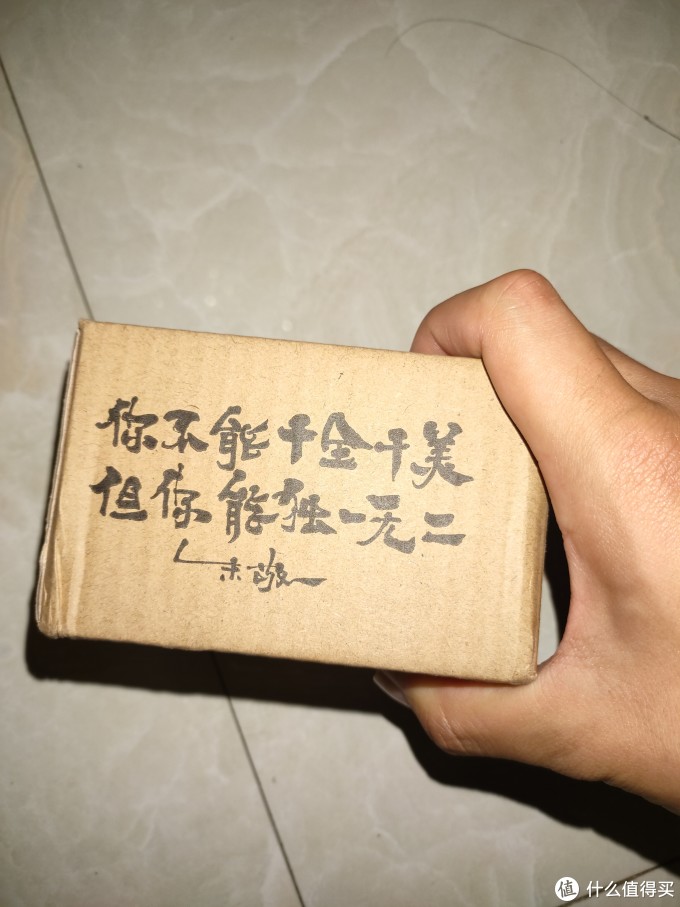 你不能十全十美
但你能独一无二
朱敬一
值 什么值得买